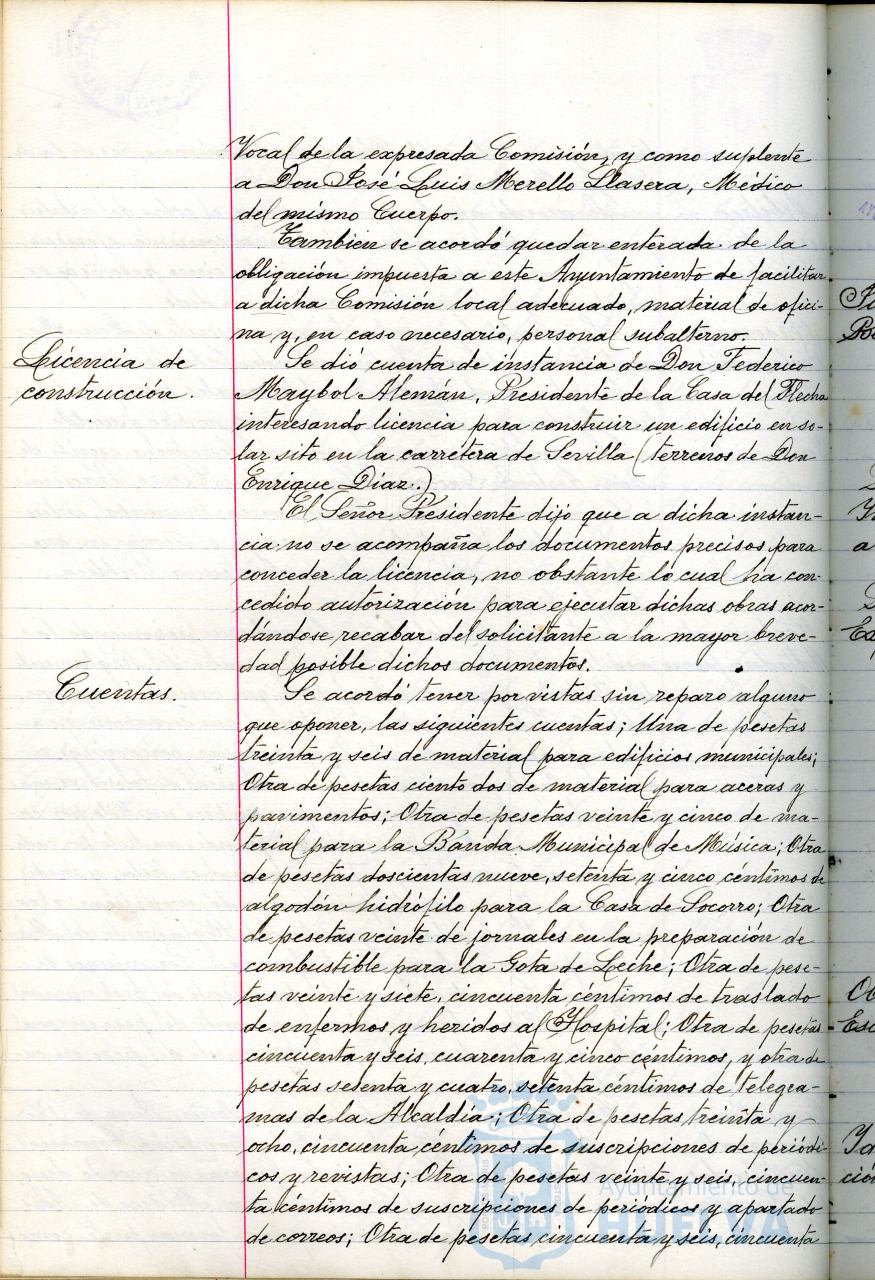 Vocal de la expresada Comisión, y como suplente
a Don José Luis Merello Llasera, Médico
del mismo Cuerpo.
Tambien se acordó quedar enterada de la
obligación impuesta a este Ayuntamiento de facilitar
a dicha Comisión local adecuado, material de ofici-
na y, en caso necesario, personal subalterno.
Licencia de
construcción.
Se dió cuenta de instancia de Don Federico
Maybol Alemán, Presidente de la Casa del Flecha
interesando licencia para construir un edificio en so-
lar sito en la carretera de Sevilla (terrenos de Don
Enrique Díaz.)
El Señor Presidente dijo que a dicha instan-
cia no se acompaña los documentos precisos para
conceder la licencia, no obstante lo cual ha con-
cedido autorización para ejecutar dichas obras acor-
dándose recabar del solicitante a la mayor breve-
dad posible dichos documentos.
Cuentas.
Se acordó tener por vistas sin reparo alguno
que oponer, las siguientes cuentas; Una de pesetas
treinta y seis de material para edificios municipales;
Otra de pesetas ciento dos de material para aceras y
pavimentos; Otra de pesetas veinte y cinco de ma-
terial para la Banda Municipal de Música; Otra
de pesetas doscientas nueve, setenta y cinco céntimos de
algodón hidrófilo para la Casa de Socorro; Otra
de pesetas veinte de jornales en la preparación de
combustible para la Gota de Leche; Otra de pese-
tas veinte y siete, cincuenta céntimos de traslado
de enfermos y heridos al Hospital; Otra de pesetas
cincuenta y seis, cuarenta y cinco céntimos, y otra de
pesetas setenta y cuatro, setenta céntimos de telegra-
mas de la Alcaldía; Otra de pesetas treinta y
ocho, cincuenta céntimos de suscripciones de periódi-
cos y revistas; Otra de pesetas veinte y seis, cincuen-
ta céntimos de suscripciones de periodicos y apartado
de correos; Otra de pesetas cincuenta y seis, cincuenta
Ayuntamiento de
HUELVA